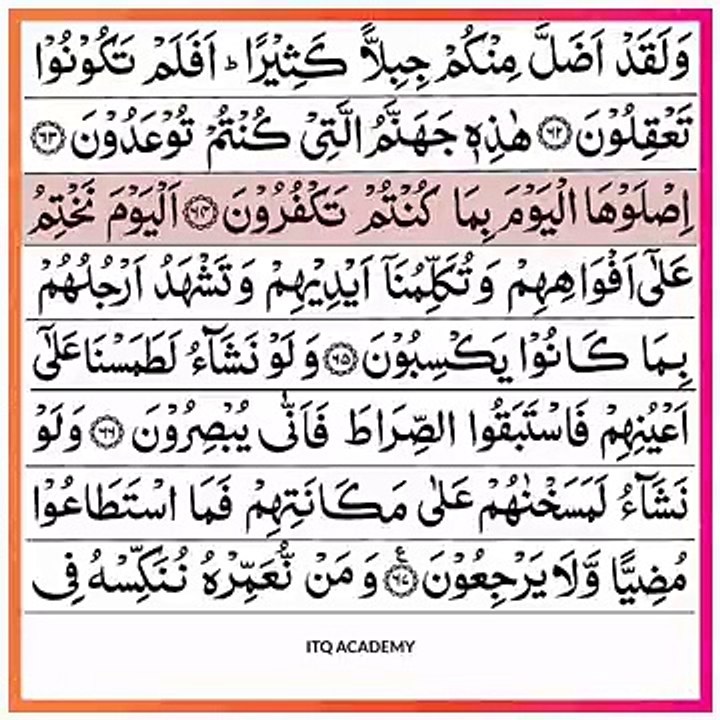 وَلَقَدْ اَضَلَّ مِنْكُمْ جِبِلًّا كَثِيْرًا ؕ اَفَلَمْ تَكُوْنُوْا
تَعْقِلُوْنَ ۝۶۲ هٰذِهٖ جَهَنَّمُ الَّتِىْ كُنْتُمْ تُوْعَدُوْنَ ۝۶۳
اِصْلَوْهَا الْيَوْمَ بِمَا كُنْتُمْ تَكْفُرُوْنَ ۝۶۴ اَلْيَوْمَ نَخْتِمُ
عَلٰٓى اَفْوَاهِهِمْ وَتُكَلِّمُنَاۤ اَيْدِيْهِمْ وَتَشْهَدُ اَرْجُلُهُمْ
بِمَا كَانُوْا يَكْسِبُوْنَ ۝۶۵ وَلَوْ نَشَآءُ لَطَمَسْنَا عَلٰٓى
اَعْيُنِهِمْ فَاسْتَبَقُوا الصِّرَاطَ فَاَنّٰى يُبْصِرُوْنَ ۝۶۶ وَلَوْ
نَشَآءُ لَمَسَخْنٰهُمْ عَلٰى مَكَانَتِهِمْ فَمَا اسْتَطَاعُوْا
مُضِيًّا وَّلَا يَرْجِعُوْنَ ۝۶۷ ع وَمَنْ نُّعَمِّرْهُ نُنَكِّسْهُ فِى
ITQ ACADEMY